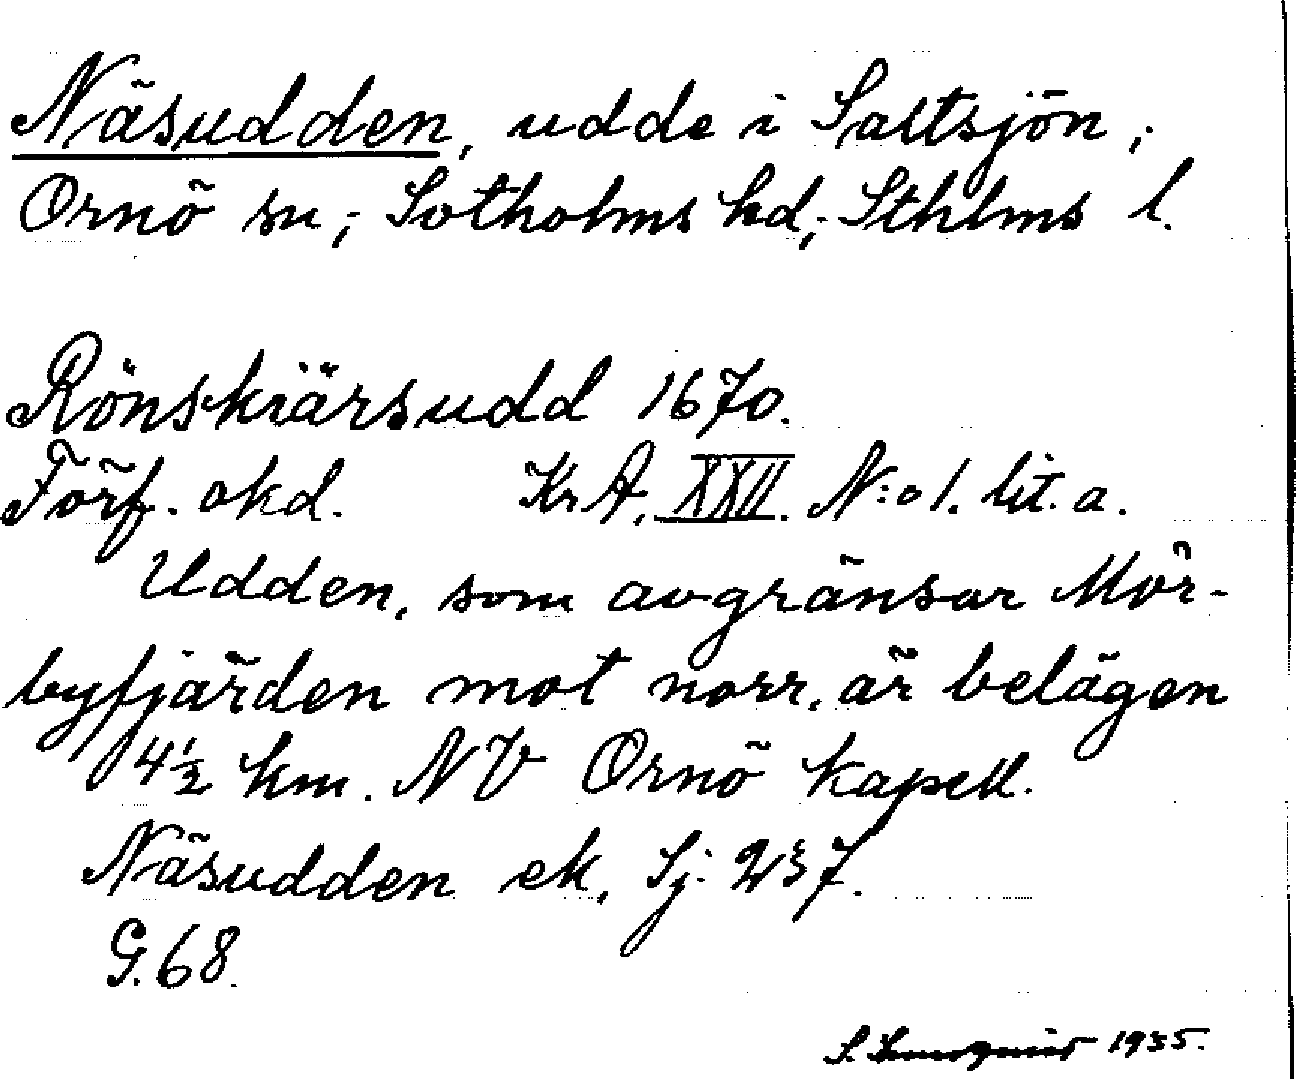 Näsudden, udde i Saltsjön,
Ornö sn, Sotholms hd, Sthlms l.
Rönskiärsudd 1670.
Förf. okd. KrA, XXII. N:o 1. lit. a.
Udden, som avgränsar Mör-
byfjärden mot norr, är belägen
4½ km. NV Ornö kapell.
Näsudden ek, Sj: 237.
G. 68.
S. 1935.